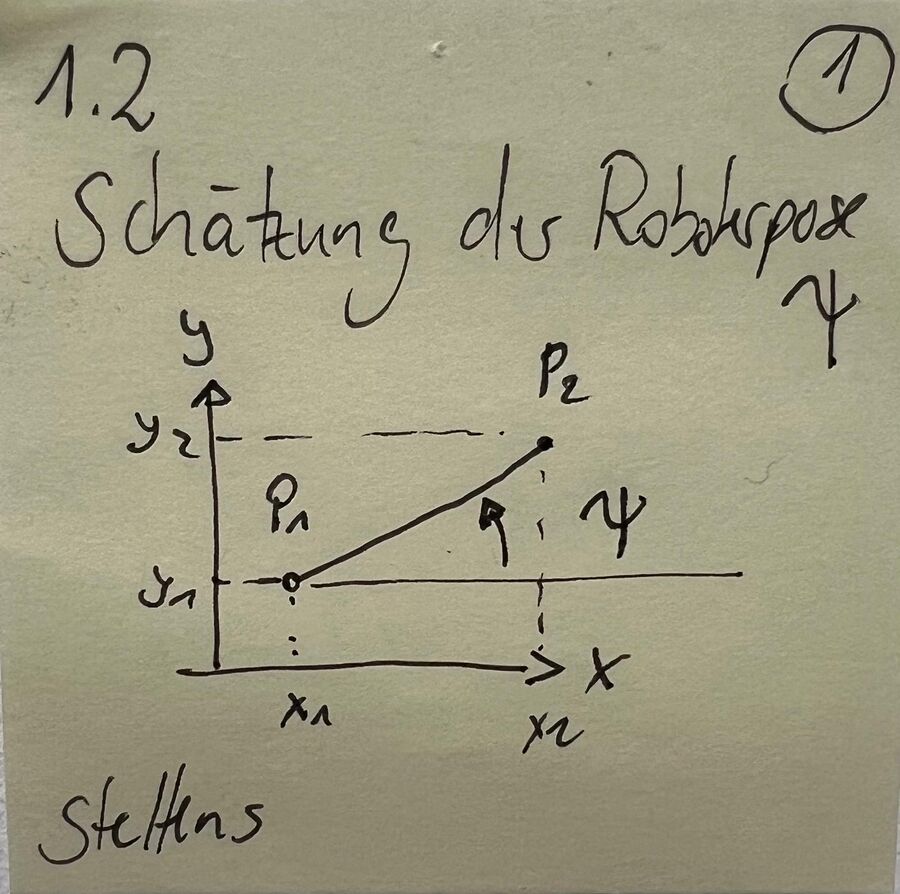 1.2
1
Schätzung der Roboterpose
ψ
y
P2
y2
P1
ψ
y1
x
x1
x2
Steffens